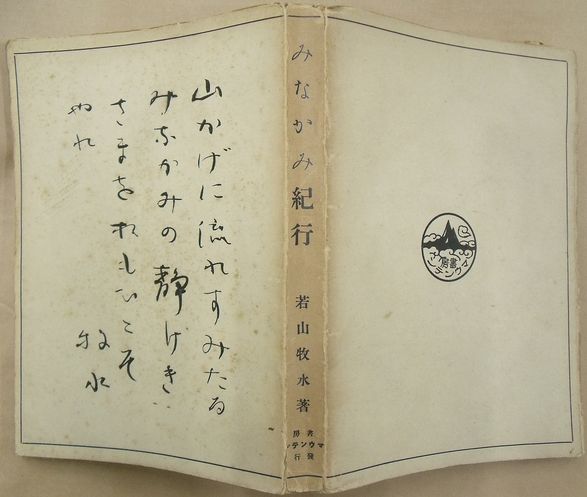 山かげに流れすみたる
みなかみの静けき
さまをおもひこそ
やれ
牧水
みなかみ紀行
若山牧水著
書房
マウンテン
發行
マウンテン
書房